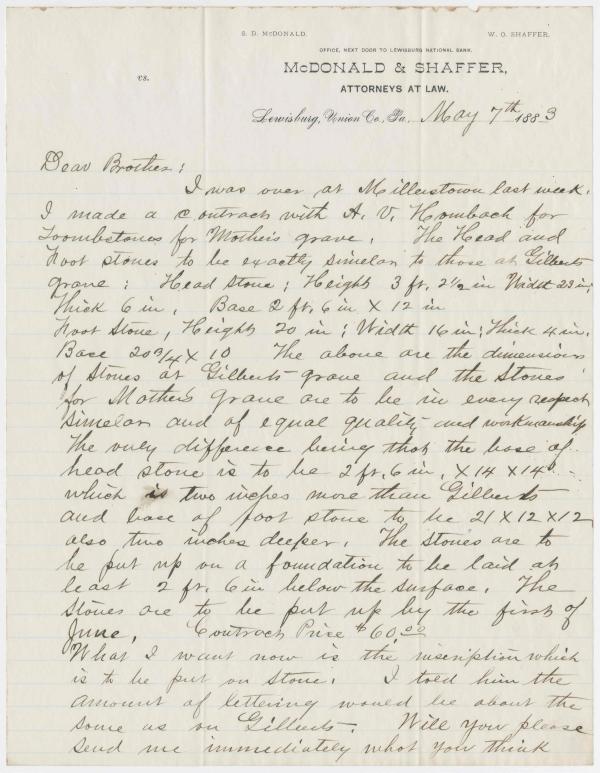 S. D. McDONALD. W. O. SHAFFER.
OFFICE, NEXT DOOR TO LEWISBURG NATIONAL BANK.
McDONALD & SHAFFER,
vs.
ATTORNEYS AT LAW.
Lewisburg, Union Co., Pa., May 7th 1883
Dear Brother:
I was over at Millerstown last week.
I made a contract with A. V. Hombach for
Toombstones for Mother's grave. The Head and
Foot stones to be exactly simelar to those at Gilberts
grave: Head Stone; Height 3 ft. 2 1/2 in Width 23 in;
Thick 6 in. Base 2 ft. 6 in X 12 in
Foot Stone, Height 20 in; Width 16 in; Thick 4 in.
Base 20 3/4 X 10 The above are the dimensions
of Stones at Gilberts grave and the Stones
for Mother's grave are to be in every respect
simelar and of equal quality and workmanship
The only difference being that the base of
head stone is to be 2 ft. 6 in. X 14 X 14
which is two inches more than Gilberts
and base of foot stone to be 21 X 12 X 12
also two inches deeper. The stones are to
be put up on a foundation to be laid at
least 2 ft. 6 in below the surface. The
Stones are to be put up by the first of
June. Contract Price $60.00
What I want now is the inscription which
is to be put on stone. I told him the
amount of lettering would be about the
same as on Gilberts. Will you please
send me immediately what you think